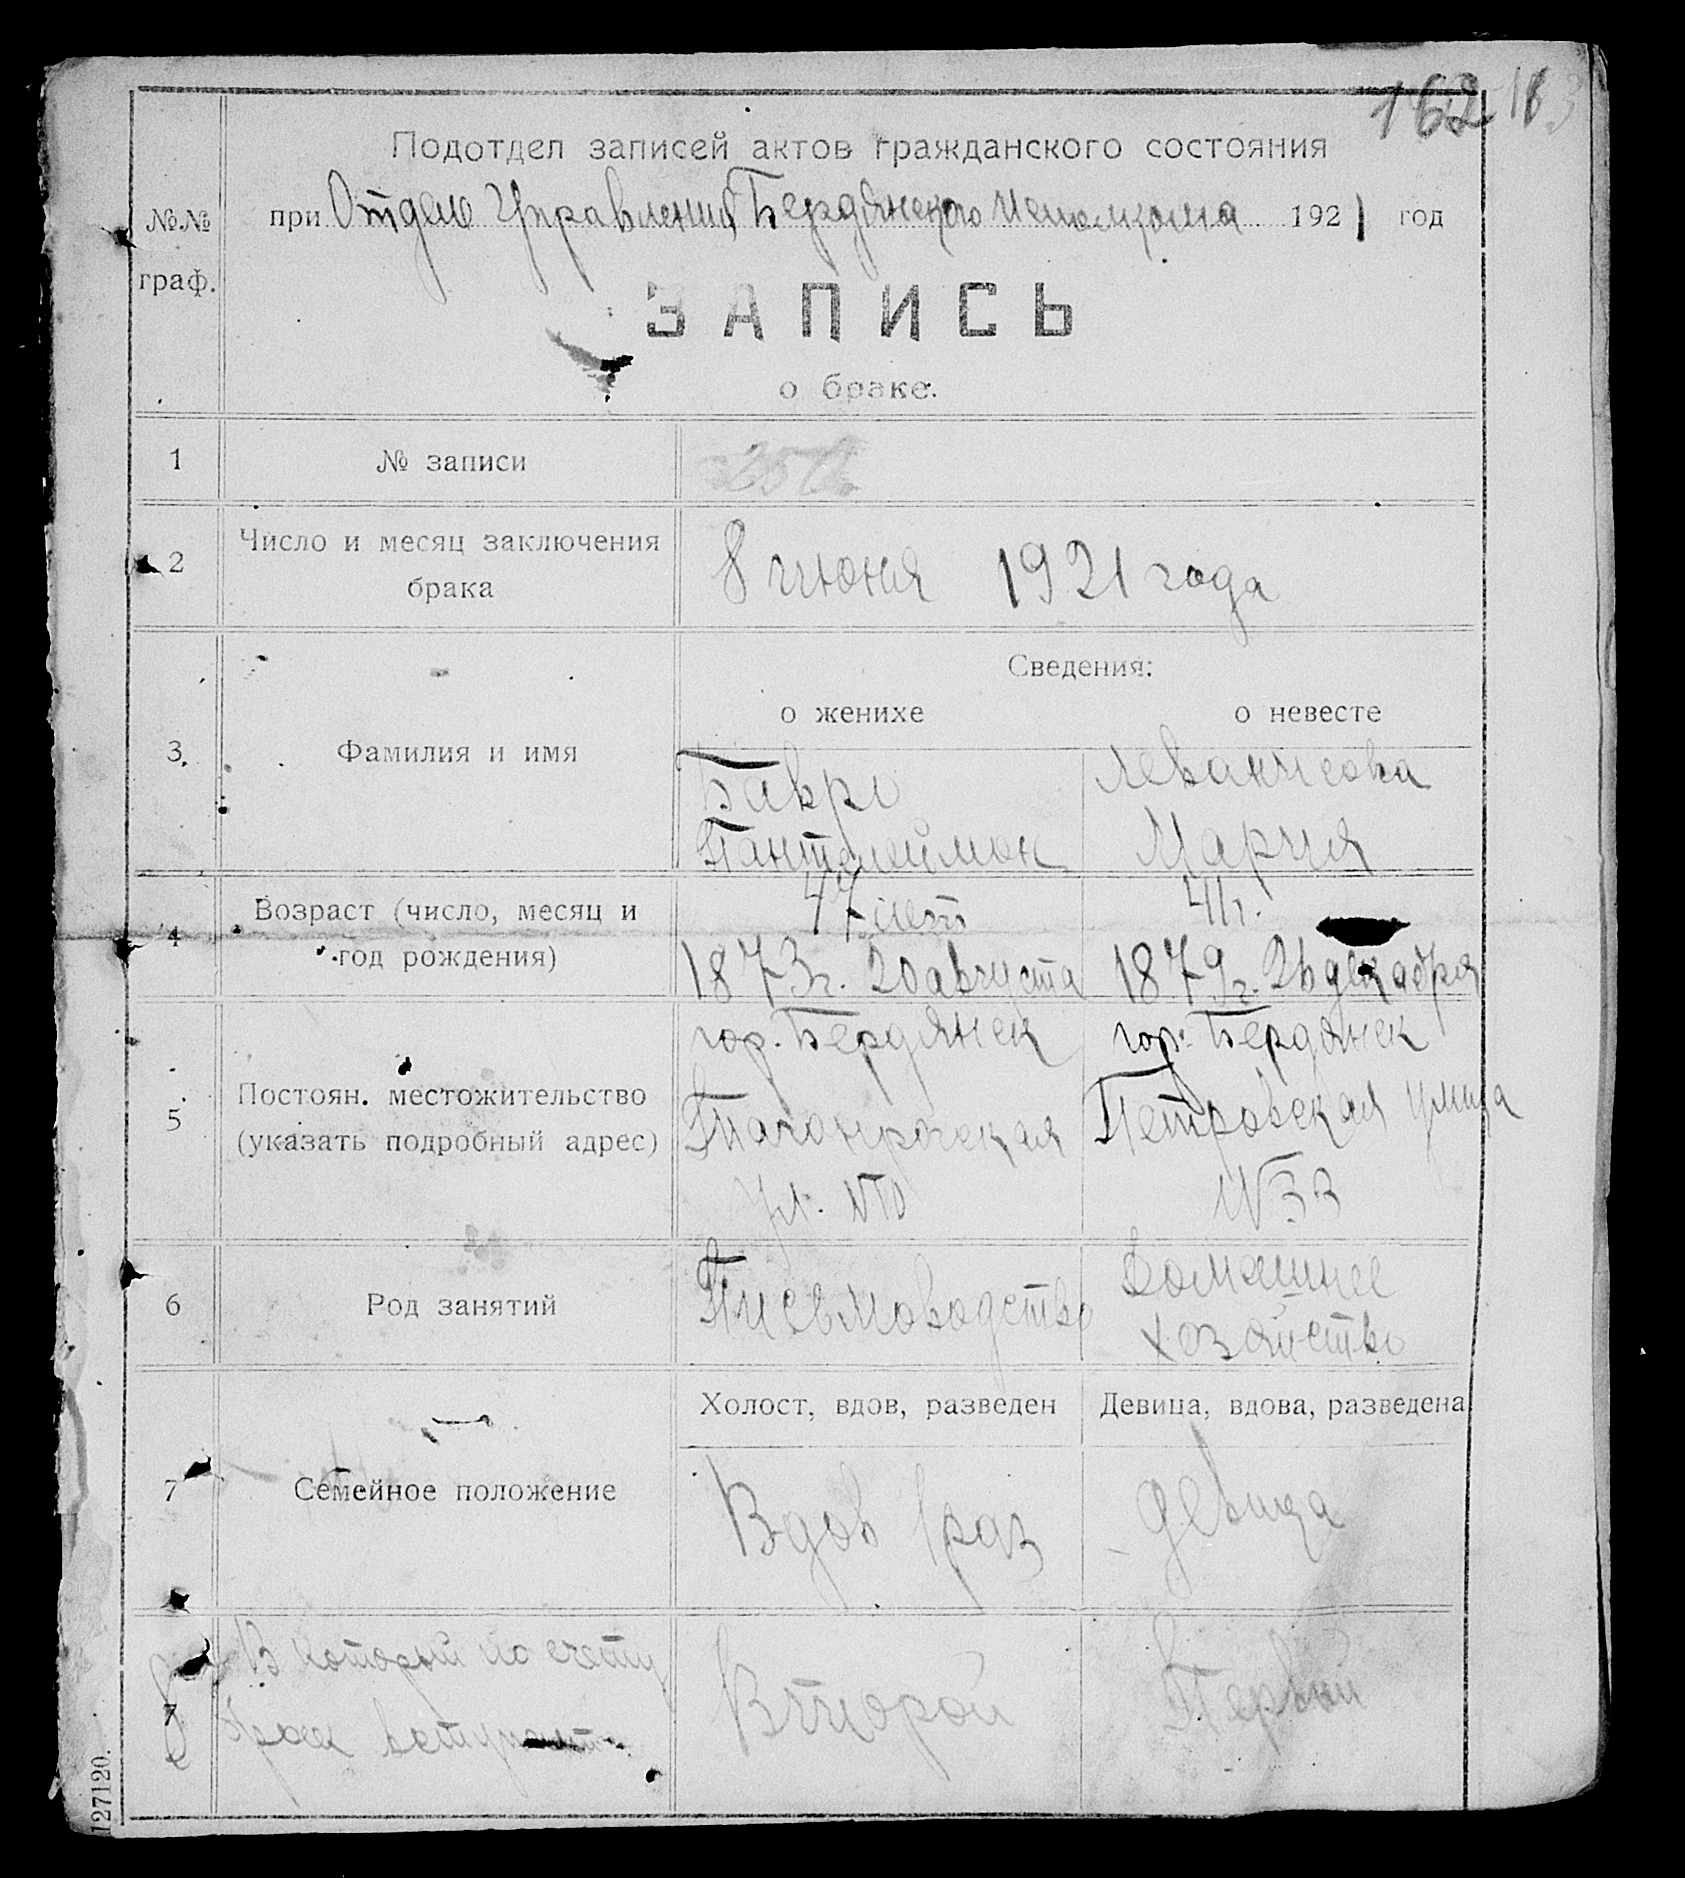 162
Подотдел записей актов гражданского состояния
№№ граф.
при Отделе Управления Бердянского Исполкома 1921 год
ЗАПИСЬ
о браке.
1 № записи
2 Число и месяц заключения брака 8 июня 1921 года
Сведения:
о женихе о невесте
3 Фамилия и имя
Бавро
Пантелеймон
Мария
4 Возраст (число, месяц и год рождения)
47 лет
1873г. 20 августа
41г.
1879г. 26 декабря
5 Постоян. местожительство (указать подробный адрес)
гор. Бердянск
Таганрогская
ул.
гор. Бердянск
Петровская улица
№33
6 Род занятий
Письмоводство
Домашнее
хозяйство
Холост, вдов, разведен Девица, вдова, разведена
7 Семейное положение
Вдов
девица
В который по счету
брак вступает
Второй
Первый
127120.